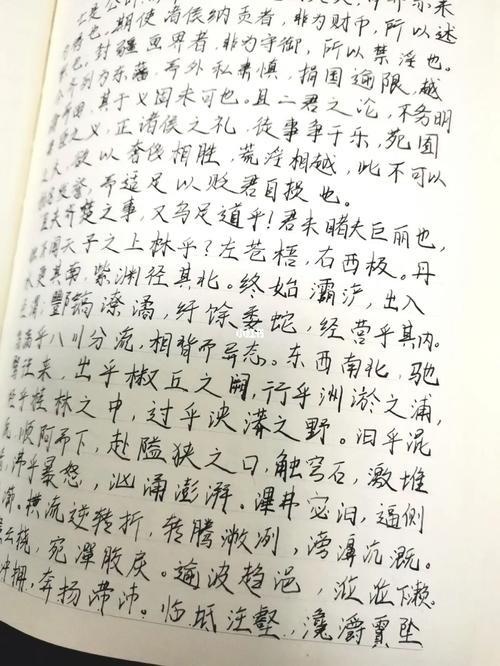 也。期使诸侯纳贡者，非为财币，所以述
也。封疆画界者，非为守御，所以禁淫也。
列为东藩，而外私肃慎，捐国逾限，越
其于义固未可也。且二君之论，不务明
之义，正诸侯之礼，徒事争于乐，苑囿
以奢侈相胜，荒淫相越，此不可以
而适足以贬君自损也。
夫齐楚之事，又乌足道乎！君未睹夫巨丽也，
闻天子之上林乎？左苍梧，右西极。丹
更其南，紫渊径其北。终始灞浐，出入
渭，酆镐潦潏，纡馀委蛇，经营乎其内。
荡乎八川分流，相背而异态。东西南北，驰
往来，出乎椒丘之阙，行乎洲淤之浦，
乎桂林之中，过乎泱漭之野。汩乎混
流，顺阿而下，赴隘狭之口，触穹石，激堆
，沸乎暴怒，汹涌澎湃。滭弗宓汩，逼侧
。横流逆转折，转腾潎洌，滂濞沆溉。
云桡，宛潬胶戾。逾波趋浥，涖涖下濑。
冲拥，奔扬滞沛。临坻注壑，瀺灂霣坠
小红书